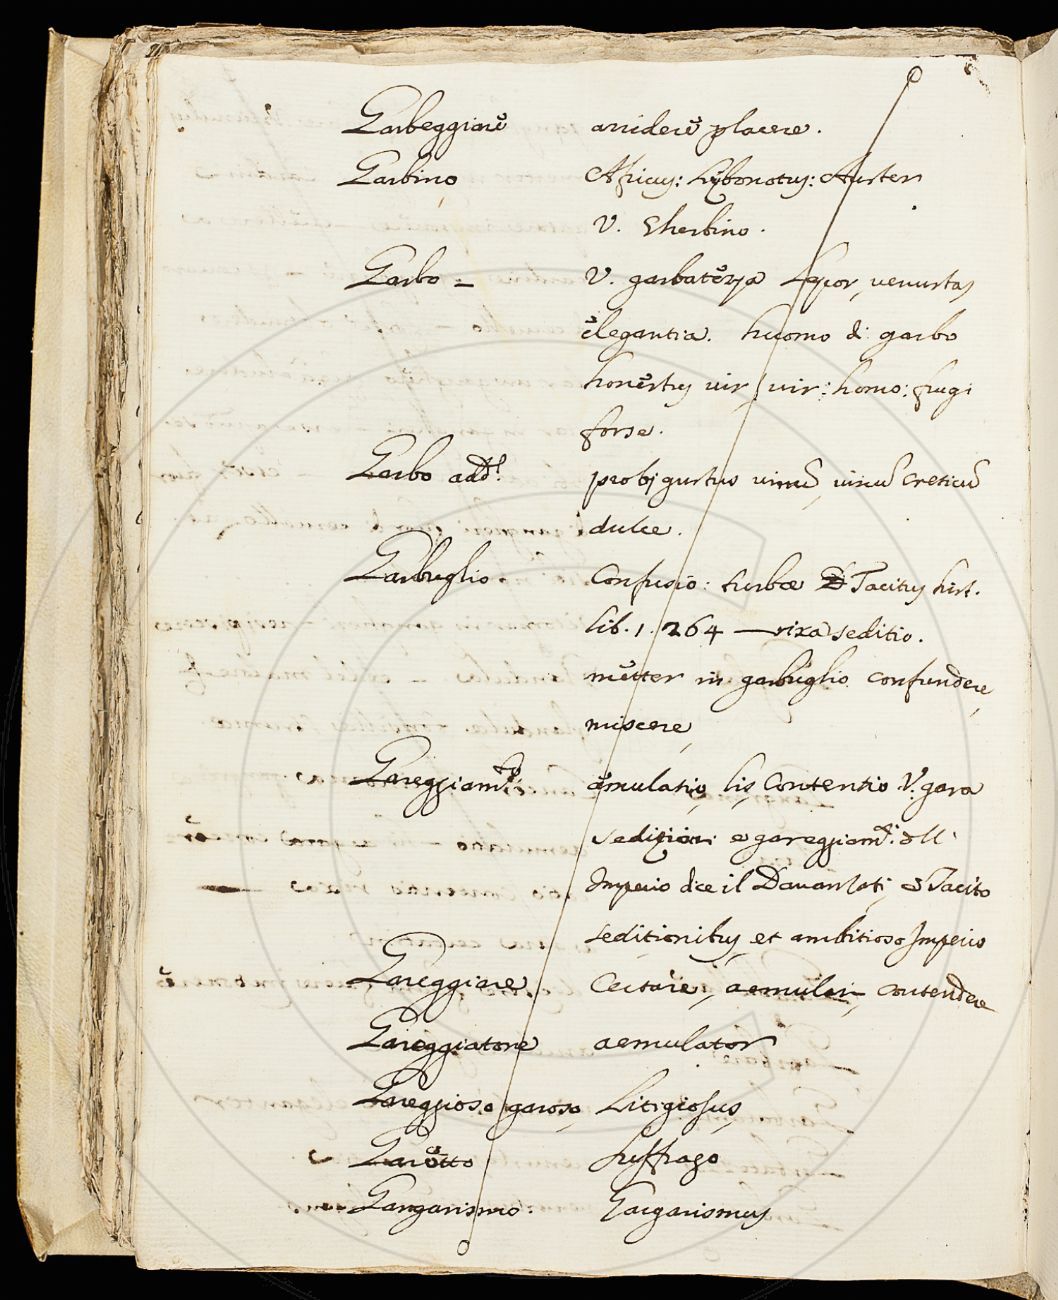 Garbeggiare arridere placere.
Garbino Africus: Lybonotus: Auster
V. Gherbino.
Garbo = V. garbatezza Lepor, venustas
elegantia. huomo di garbo
honestus vir, vir: homo: frugi
forse.
Garbo add. gustus vinum, vinum creticum
dulce.
Garbuglio. Confusio: turbae Tacitus hist.
lib. 1. 264 — rixa seditio.
metter in garbuglio confundere,
miscere,
Gareggiamto aemulatio, lis, Contentio V. gara
sedizioni e gareggiamti. dell'
Imperio dice il Davanzati, Tacito
seditionibus, et ambitioso Imperio
Gareggiare Certare, aemulari, contendere
Gareggiatore aemulator
Gareggioso, garoso, Litigiosus,
Garotto suffrago
Gargarismo. Gargarismus